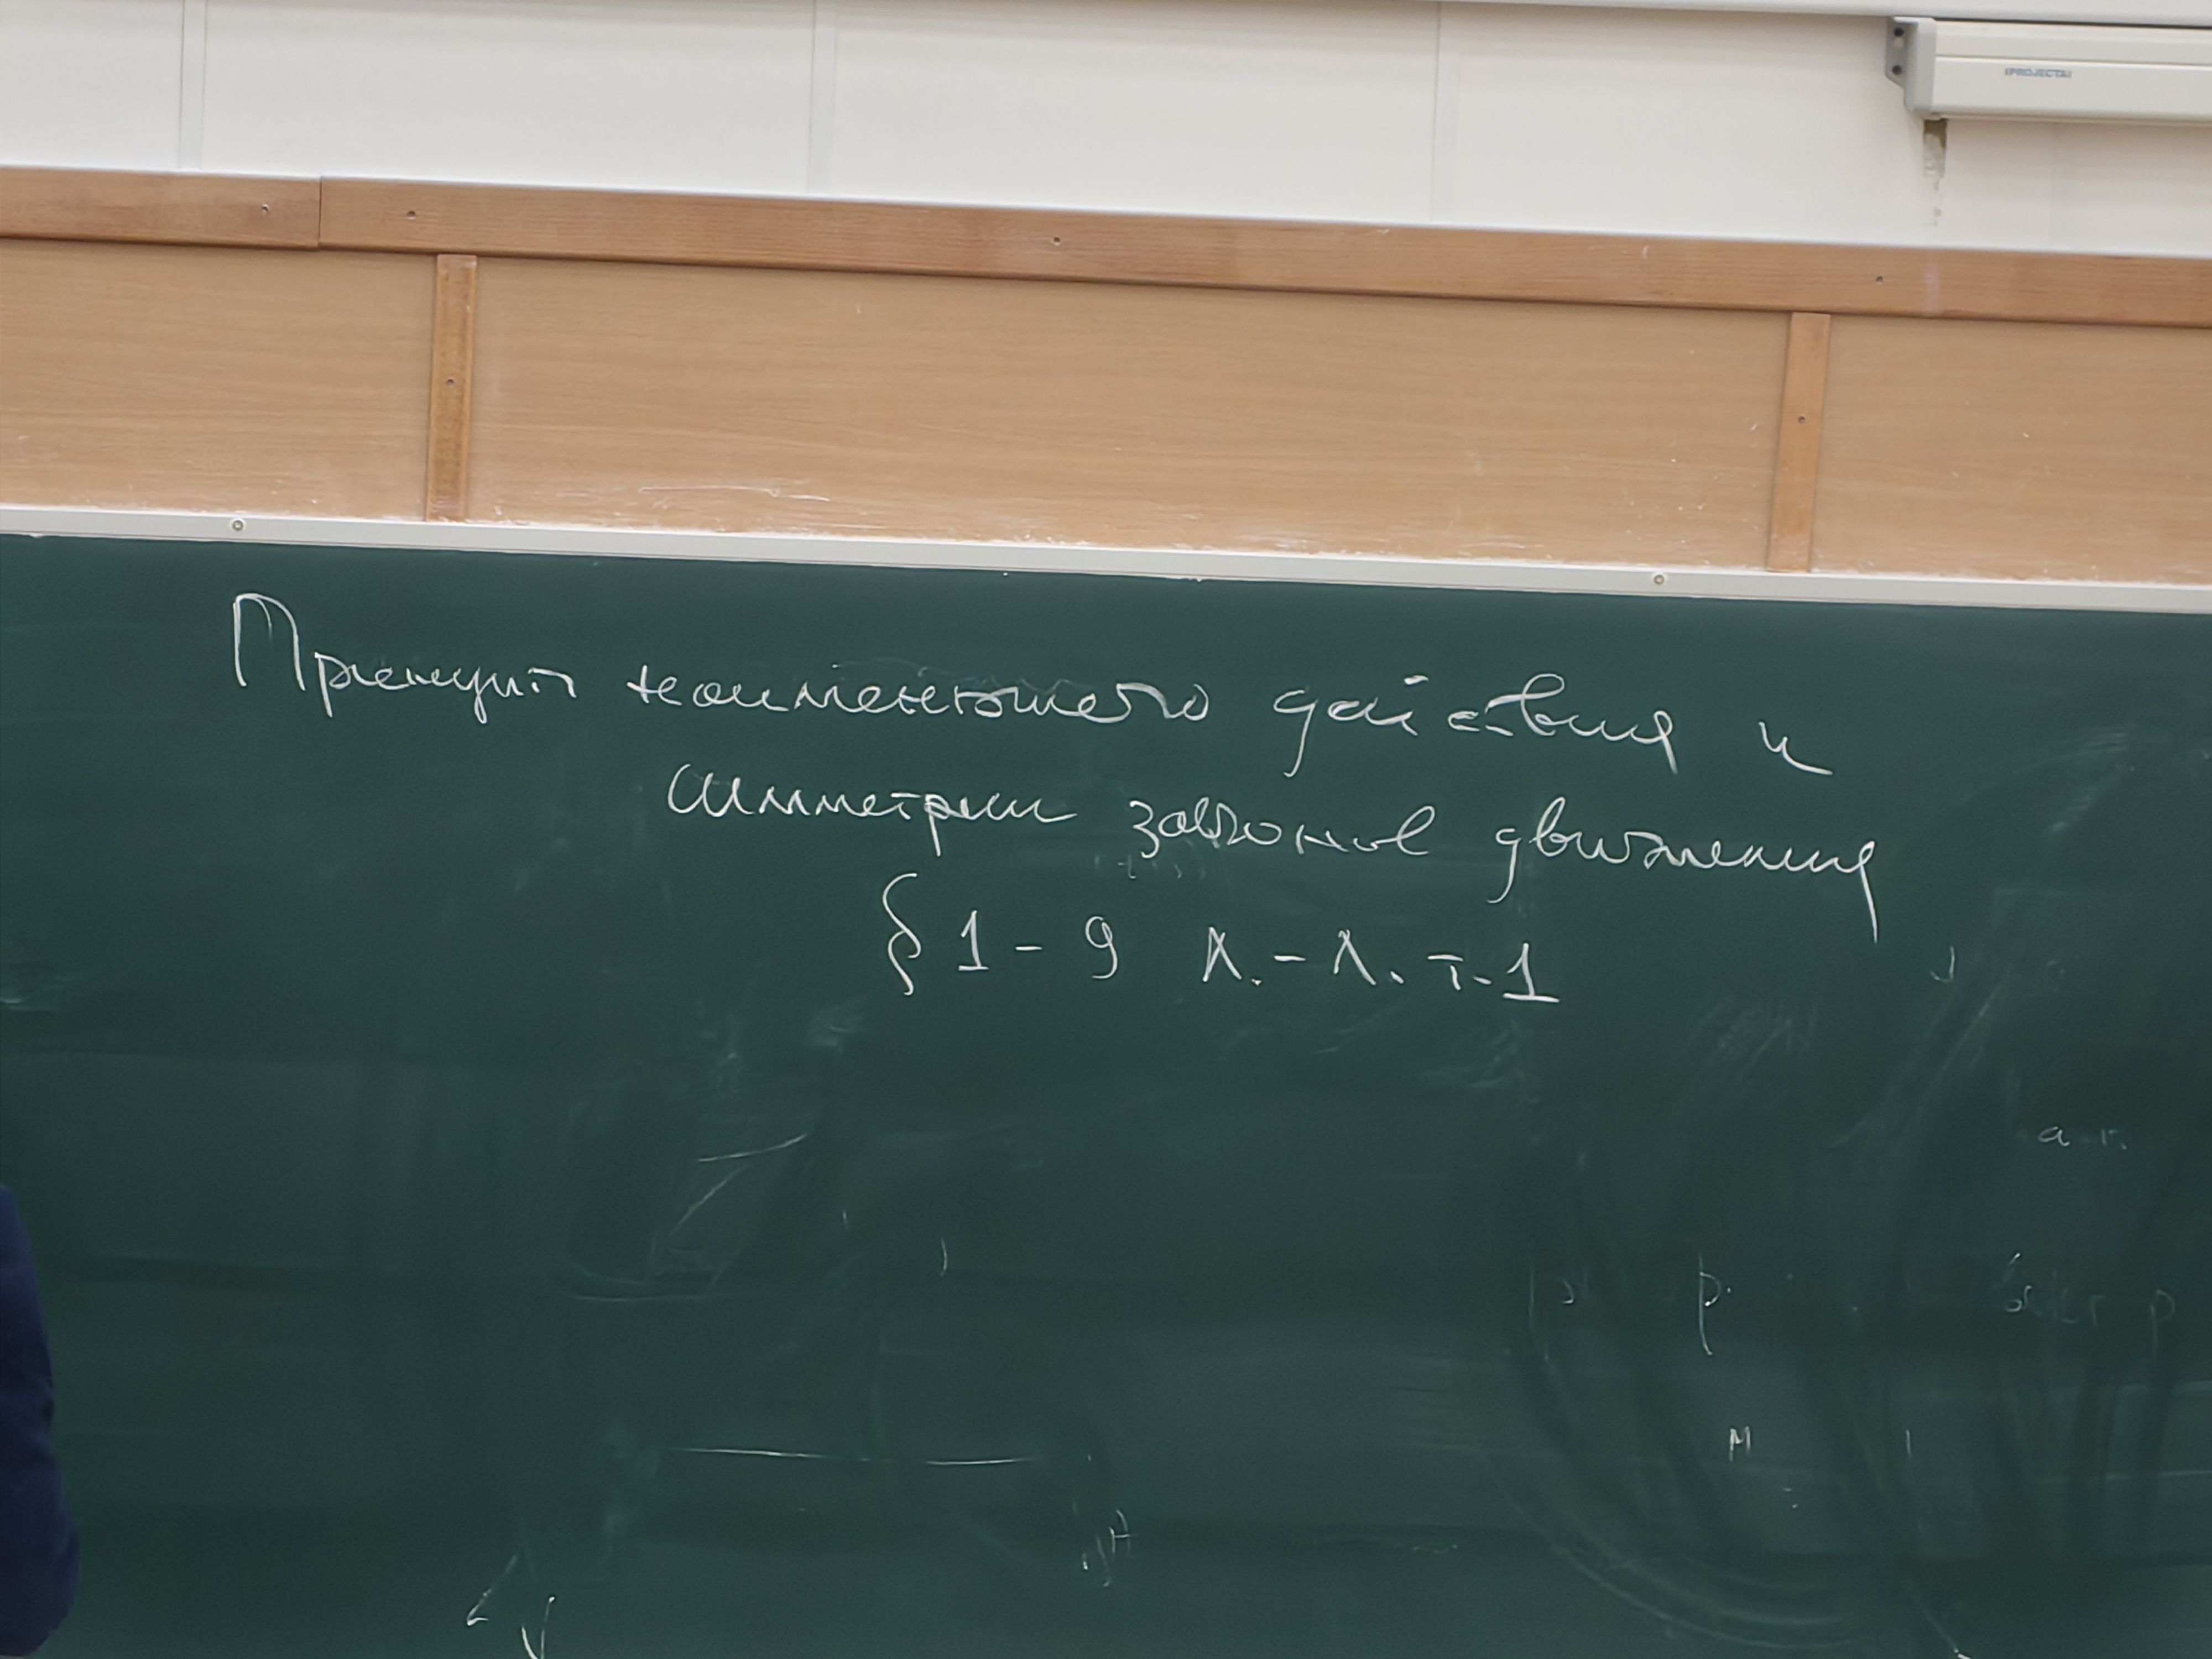 PROJECTA
Принцип наименьшего действия и
симметрии законов движения
§ 1 - 9 Л. - Л. т. 1